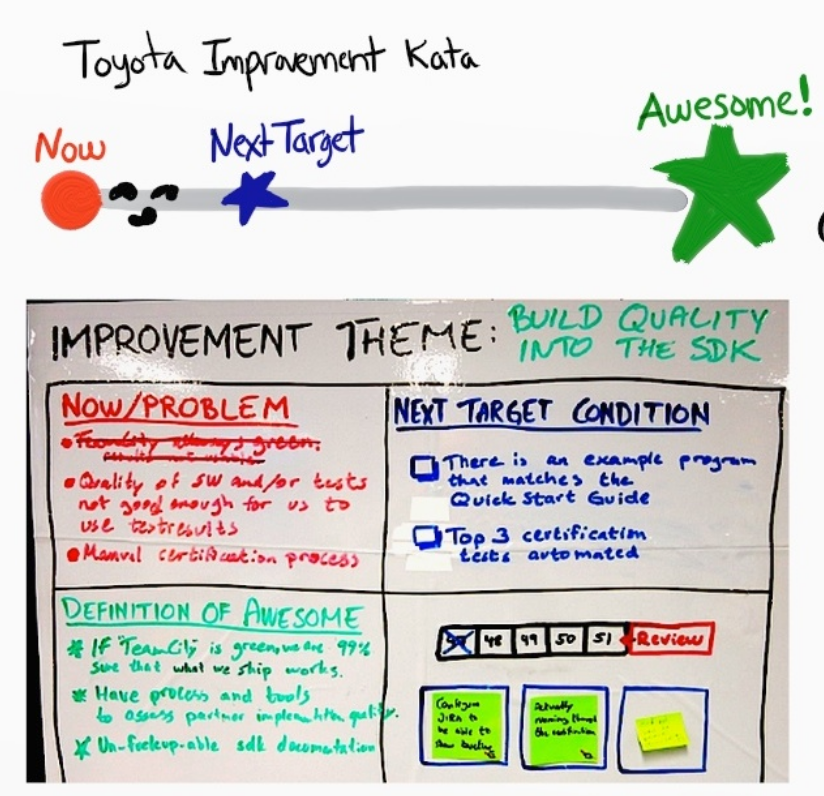 Toyota Improvement Kata
Now
Next Target
Awesome!
IMPROVEMENT THEME: BUILD QUALITY
INTO THE SDK
NOW/PROBLEM
TeamCity always green.
results not
• Quality of SW and/or tests
not good enough for us to
use testresults
• Manual certification process
NEXT TARGET CONDITION
There is an example program
that matches the
Quick Start Guide
Top 3 certification
tests automated
DEFINITION OF AWESOME
* If "TeamCity" is green, we are 99%
sure that what we ship works.
* Have process and tools
to assess partner implemention quality.
* Un-fuckup-able sdk documentation
47 48 49 50 51 Review
Configure
JIRA to
be able to
show
Actually
running through
the certification